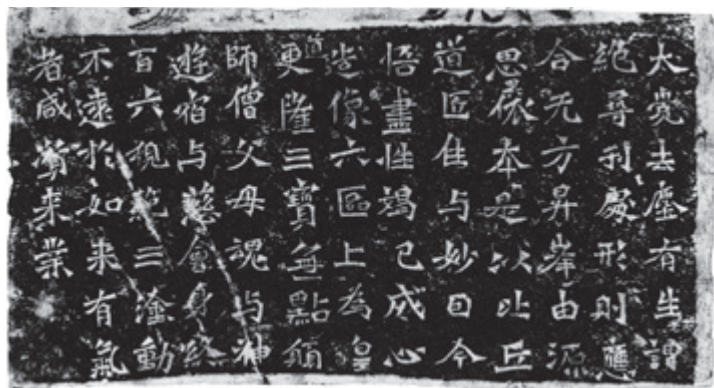 大覺去塵有生謂
絕尋刊處形則應
合无方昇峰由源
思依本是以比丘
道匠住与妙因今
悟盡性竭己成心
造像六區上為皇
道更隆三寶無點願
師僧父母魂与神
遊宿与慈會身終
百六視絕三塗動
不遠於如来有氣
者咸資来業